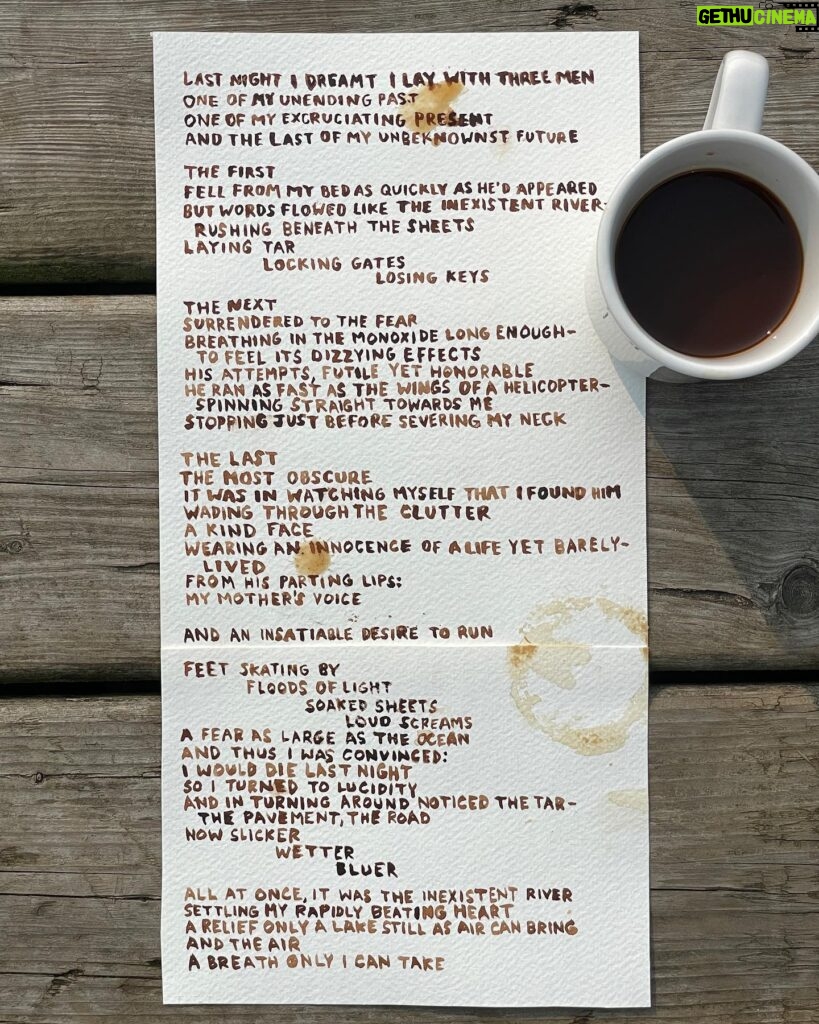 GETHUCINEMA
LAST NIGHT I DREAMT I LAY WITH THREE MEN
ONE OF MY UNENDING PAST
ONE OF MY EXCRUCIATING PRESENT
AND THE LAST OF MY UNBEKNOWNST FUTURE
THE FIRST
FELL FROM MY BED AS QUICKLY AS HE'D APPEARED
BUT WORDS FLOWED LIKE THE INEXISTENT RIVER-
RUSHING BENEATH THE SHEETS
LAYING TAR
LOCKING GATES
LOSING KEYS
THE NEXT
SURRENDERED TO THE FEAR
BREATHING IN THE MONOXIDE LONG ENOUGH-
TO FEEL ITS DIZZYING EFFECTS
HIS ATTEMPTS, FUTILE YET HONORABLE
HE RAN AS FAST AS THE WINGS OF A HELICOPTER-
SPINNING STRAIGHT TOWARDS ME
STOPPING JUST BEFORE SEVERING MY NECK
THE LAST
THE MOST OBSCURE
IT WAS IN WATCHING MYSELF THAT I FOUND HIM
WADING THROUGH THE CLUTTER
A KIND FACE
WEARING AN INNOCENCE OF A LIFE YET BARELY-
LIVED
FROM HIS PARTING LIPS:
MY MOTHER'S VOICE
AND AN INSATIABLE DESIRE TO RUN
FEET SKATING BY
FLOODS OF LIGHT
SOAKED SHEETS
LOUD SCREAMS
A FEAR AS LARGE AS THE OCEAN
AND THUS I WAS CONVINCED:
I WOULD DIE LAST NIGHT
SO I TURNED TO LUCIDITY
AND IN TURNING AROUND NOTICED THE TAR-
THE PAVEMENT, THE ROAD
NOW SLICKER
WETTER
BLUER
ALL AT ONCE, IT WAS THE INEXISTENT RIVER
SETTLING MY RAPIDLY BEATING HEART
A RELIEF ONLY A LAKE STILL AS AIR CAN BRING
AND THE AIR
A BREATH ONLY I CAN TAKE